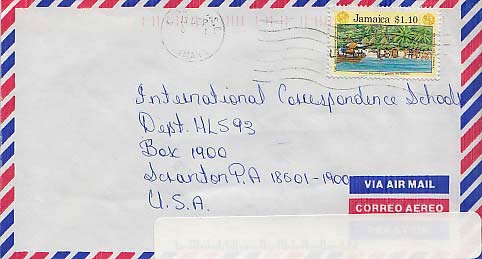 Jamaica $1.10
International Correspondence Schools
Dept. HLS93
Box 1900
Scranton P.A 18501-1900
U.S.A.
VIA AIR MAIL
CORREO AEREO